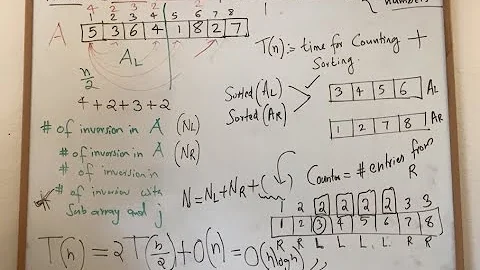 numbers
4 2 3 2
1 2 3 4 5 6 7 8
A 5 3 6 4 1 8 2 7
T(n) := time for Counting +
Sorting
AL
n/2
4+2+3+2
Sorted (AL)
3 4 5 6 AL
Sorted (AR)
1 2 7 8 AR
# of inversion in A (NL)
# of inversion in A (NR)
# of inversion in
# of inversion with
Sub array and j
N = NL + NR + (
Counter = # entries from
R
2 2 2 2 2 3 3
1 2 3 4 5 6 7 8
R R L L L L R R
T(n) = 2T(n/2) + O(n) = O(n logn)